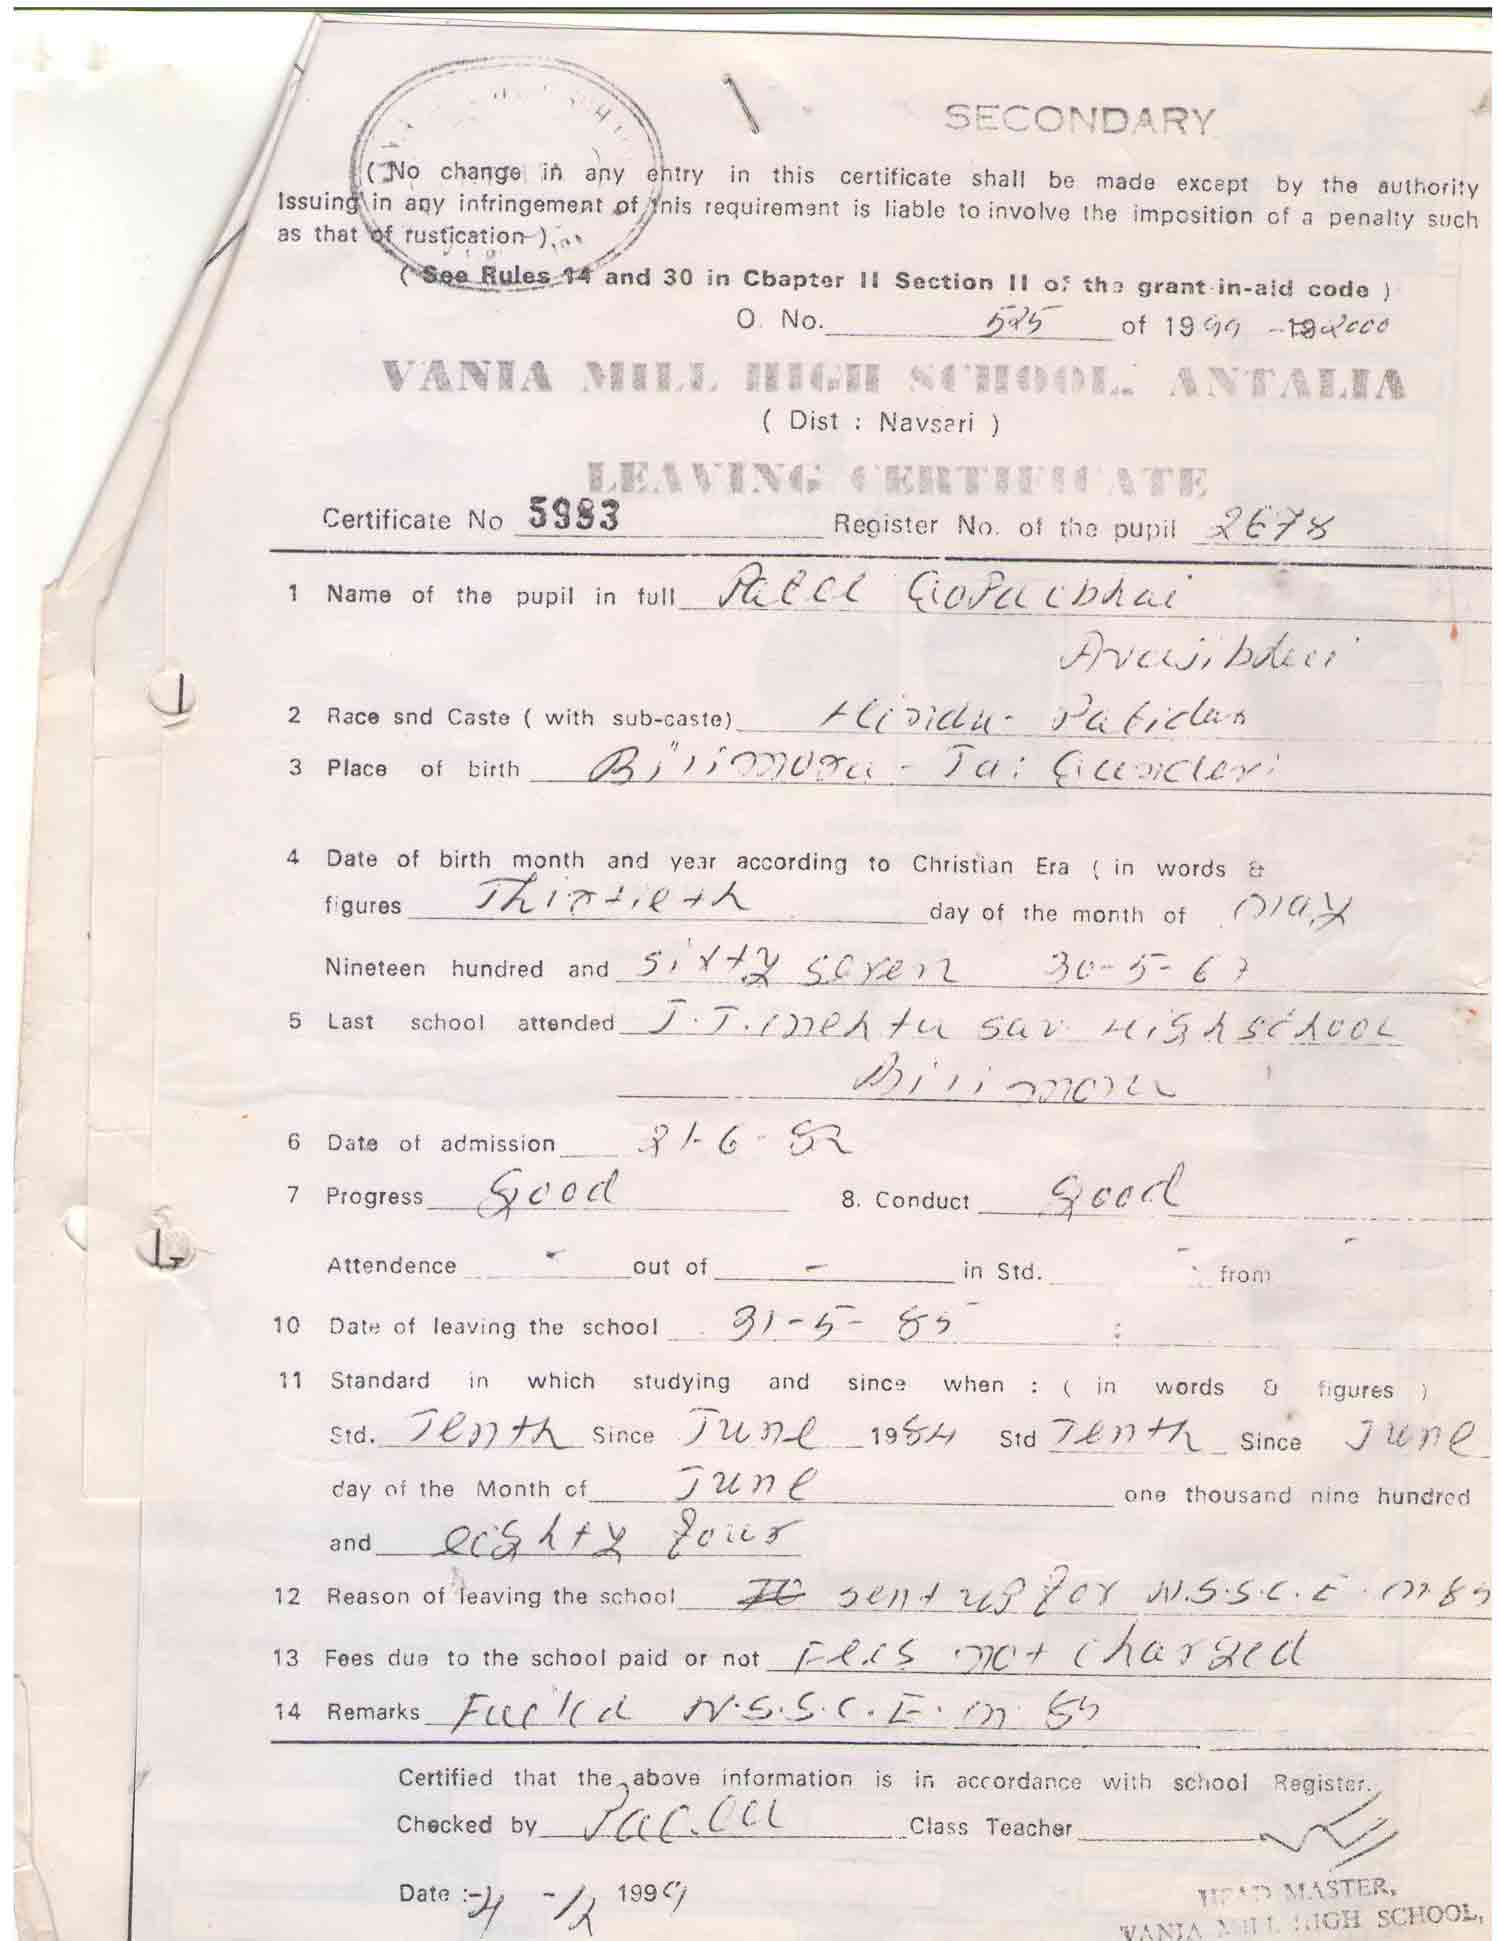 SECONDARY
( No change in any entry in this certificate shall be made except by the authority
Issuing in any infringement of this requirement is liable to involve the imposition of a penalty such
as that of rustication ).
( See Rules 14 and 30 in Cbapter II Section II of the grant-in-aid code )
O. No. 525 of 1999 - 19 2000
VANIA MILL HIGH SCHOOL. ANTALIA
( Dist : Navsari )
LEAVING CERTIFICATE
Certificate No 5983 Register No. of the pupil 2678
1 Name of the pupil in full Patel Gopalbhai
2 Race snd Caste ( with sub-caste) Hindu - Patidar
3 Place of birth Bilimora - Ta: Gandevi
4 Date of birth month and year according to Christian Era ( in words &
figures Thirtieth day of the month of may
Nineteen hundred and sixty seven 30-5-67
5 Last school attended J.J. mehta sar. High school
Bilimora
6 Date of admission 21-6-82
7 Progress Good 8. Conduct Good
Attendence - out of - in Std. - from -
10 Date of leaving the school 31-5-85
11 Standard in which studying and since when : ( in words & figures )
Std. Tenth Since June 1984 Std Tenth Since June
day of the Month of June one thousand nine hundred
and eighty four
12 Reason of leaving the school sent up for N.S.S.C.E. in 85
13 Fees due to the school paid or not Fees not charged
14 Remarks Failed N.S.S.C.E. in 85
Certified that the above information is in accordance with school Register.
Checked by Class Teacher
Date :- 4 - 12 1999
HEAD MASTER,
VANIA MILL HIGH SCHOOL,